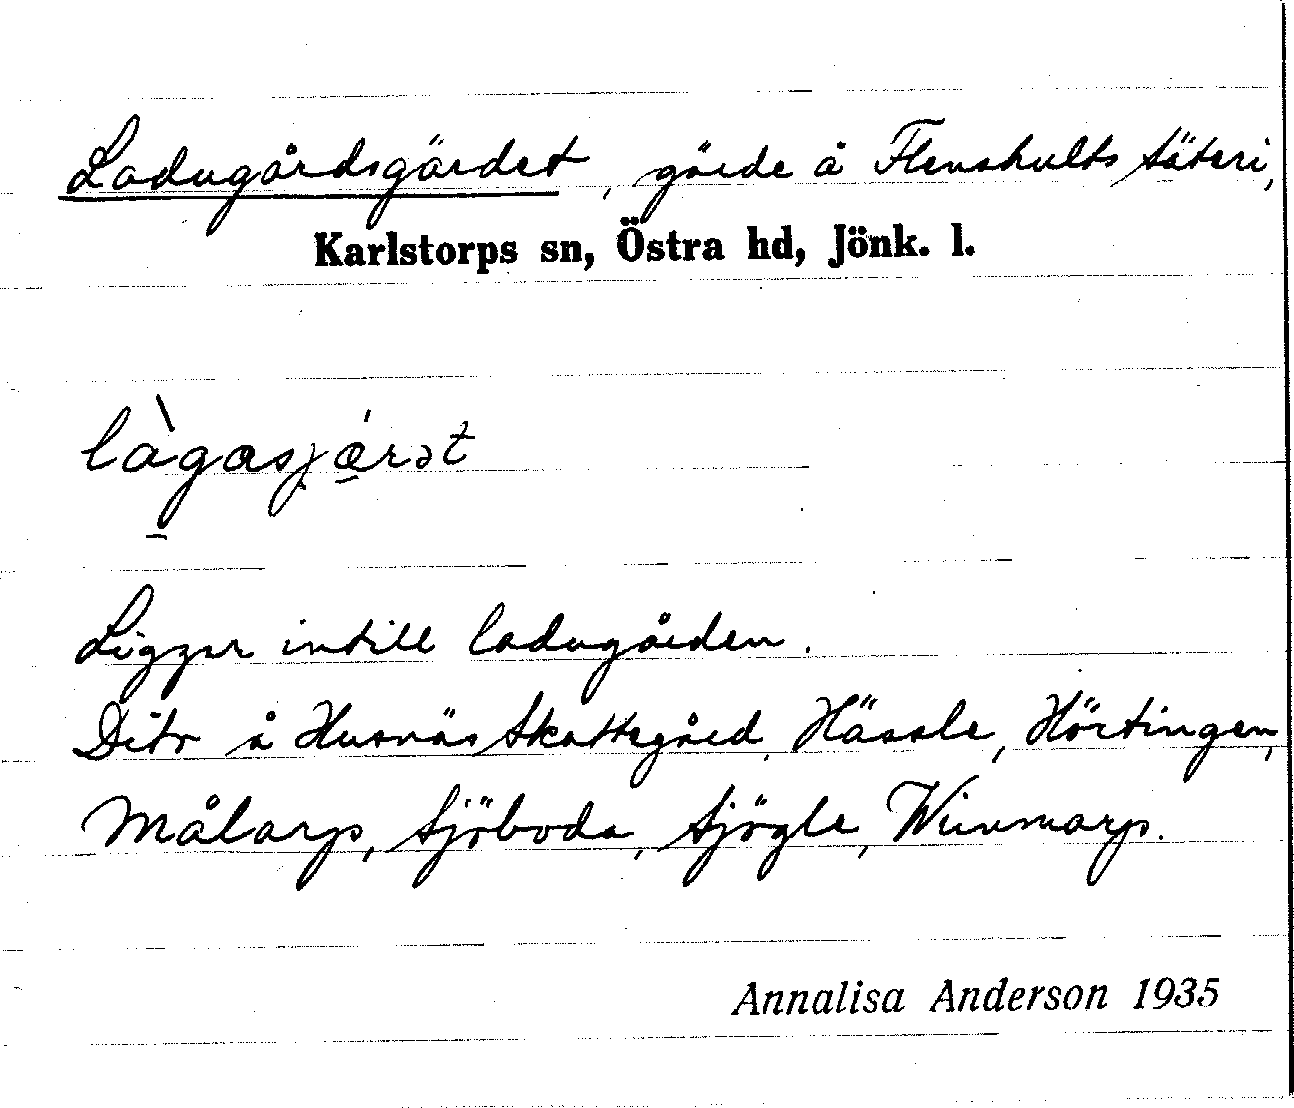 Ladugårdsgärdet, gärde å Flenshults säteri,
Karlstorps sn, Östra hd, Jönk. l.
làgasjǽrət
Ligger intill ladugården.
Dito å Husnäs Skattegård, Hässle, Hörtingen,
Målarp, Sjöboda, Sjögle, Winmarp.
Annalisa Anderson 1935